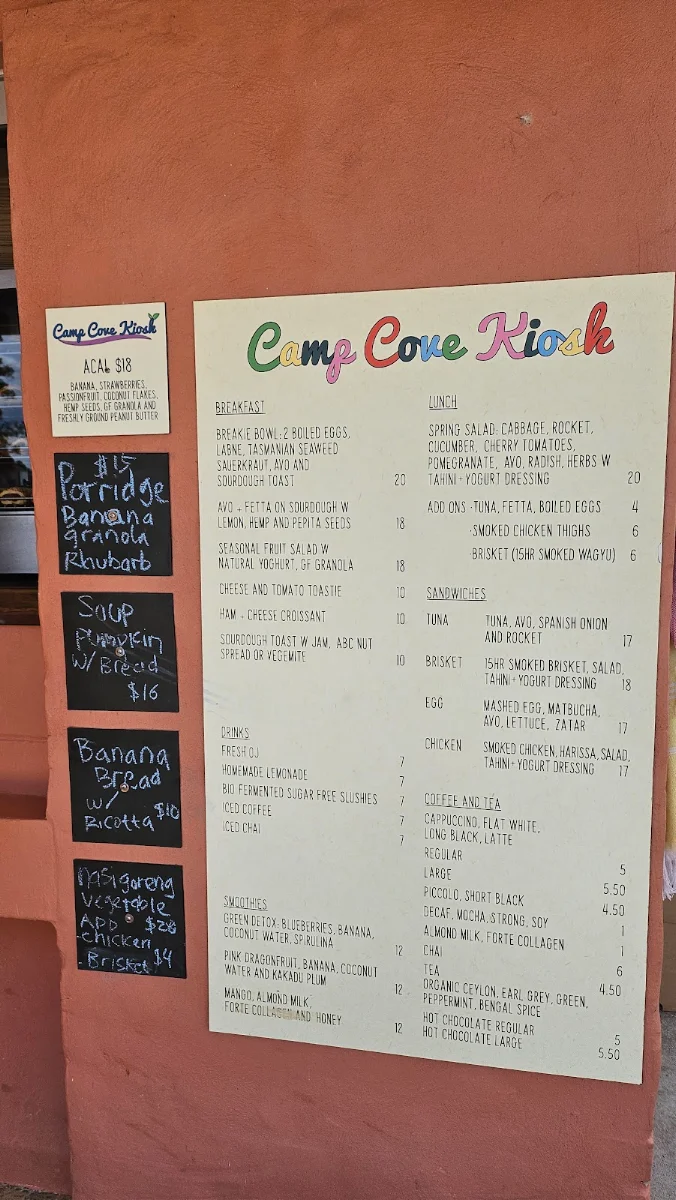 Camp Cove Kiosk
ACAI $18
BANANA, STRAWBERRIES,
PASSIONFRUIT, COCONUT FLAKES,
HEMP SEEDS, GF GRANOLA AND
FRESHLY GROUND PEANUT BUTTER
$15
Porridge
Banana
granola
Rhubarb
Soup
Pumpkin
W/ Bread
$16
Banana
Bread
W/ $10
Ricotta
nasi goreng
Vegetable
ADD $20
-chicken
-Brisket $4
Camp Cove Kiosk
BREAKFAST
BREAKIE BOWL: 2 BOILED EGGS,
LABNE, TASMANIAN SEAWEED
SAUERKRAUT, AVO AND
SOURDOUGH TOAST 20
AVO + FETTA ON SOURDOUGH W
LEMON, HEMP AND PEPITA SEEDS 18
SEASONAL FRUIT SALAD W
NATURAL YOGHURT, GF GRANOLA 18
CHEESE AND TOMATO TOASTIE 10
HAM + CHEESE CROISSANT 10
SOURDOUGH TOAST W JAM, ABC NUT
SPREAD OR VEGEMITE 10
DRINKS
FRESH OJ 7
HOMEMADE LEMONADE 7
BIO FERMENTED SUGAR FREE SLUSHIES 7
ICED COFFEE 7
ICED CHAI 7
SMOOTHIES
GREEN DETOX: BLUEBERRIES, BANANA,
COCONUT WATER, SPIRULINA 12
PINK DRAGONFRUIT, BANANA, COCONUT
WATER AND KAKADU PLUM 12
MANGO, ALMOND MILK,
FORTE COLLAGEN AND HONEY 12
LUNCH
SPRING SALAD: CABBAGE, ROCKET,
CUCUMBER, CHERRY TOMATOES,
POMEGRANATE, AVO, RADISH, HERBS W
TAHINI + YOGURT DRESSING 20
ADD ONS -TUNA, FETTA, BOILED EGGS 4
-SMOKED CHICKEN THIGHS 6
-BRISKET (15HR SMOKED WAGYU) 6
SANDWICHES
TUNA TUNA, AVO, SPANISH ONION
AND ROCKET 17
BRISKET 15HR SMOKED BRISKET, SALAD,
TAHINI + YOGURT DRESSING 18
EGG MASHED EGG, MATBUCHA,
AVO, LETTUCE, ZATAR 17
CHICKEN SMOKED CHICKEN, HARISSA, SALAD,
TAHINI + YOGURT DRESSING 17
COFFEE AND TEA
CAPPUCCINO, FLAT WHITE,
LONG BLACK, LATTE
REGULAR 5
LARGE 5.50
PICCOLO, SHORT BLACK 4.50
DECAF, MOCHA, STRONG, SOY 1
ALMOND MILK, FORTE COLLAGEN 1
CHAI 6
TEA 4.50
ORGANIC CEYLON, EARL GREY, GREEN,
PEPPERMINT, BENGAL SPICE
HOT CHOCOLATE REGULAR 5
HOT CHOCOLATE LARGE 5.50